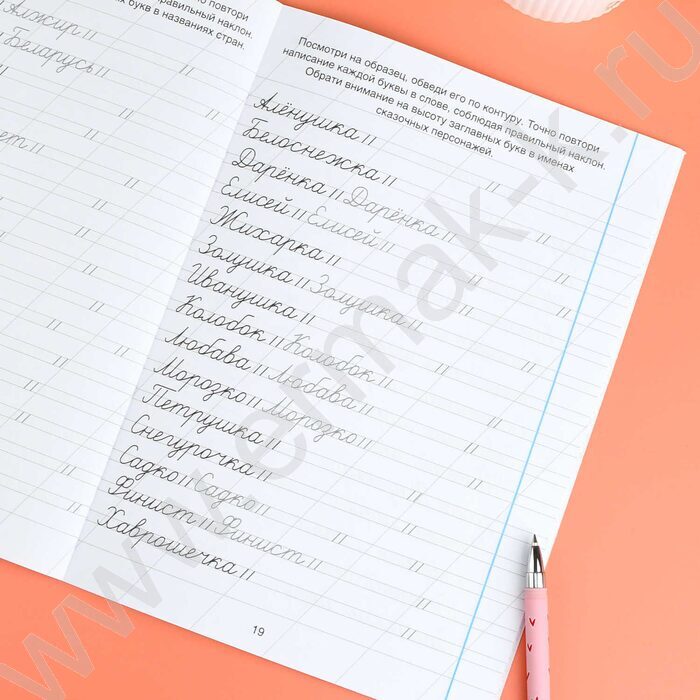 но повтори
правильный наклон.
х букв в названиях стран.
Алжир //
Беларусь //
Посмотри на образец, обведи его по контуру. Точно повтори
написание каждой буквы в слове, соблюдая правильный наклон.
Обрати внимание на высоту заглавных букв в именах
сказочных персонажей.
Алёнушка //
Белоснежка //
Дарёнка // Дарёнка //
Елисей // Елисей //
Жихарка //
Золушка // Золушка //
Иванушка //
Колобок // Колобок //
Любава // Любава //
Морозко // Морозко //
Петрушка //
Снегурочка //
Садко // Садко //
Финист // Финист //
Хаврошечка //
19
www.ermak-k.ru